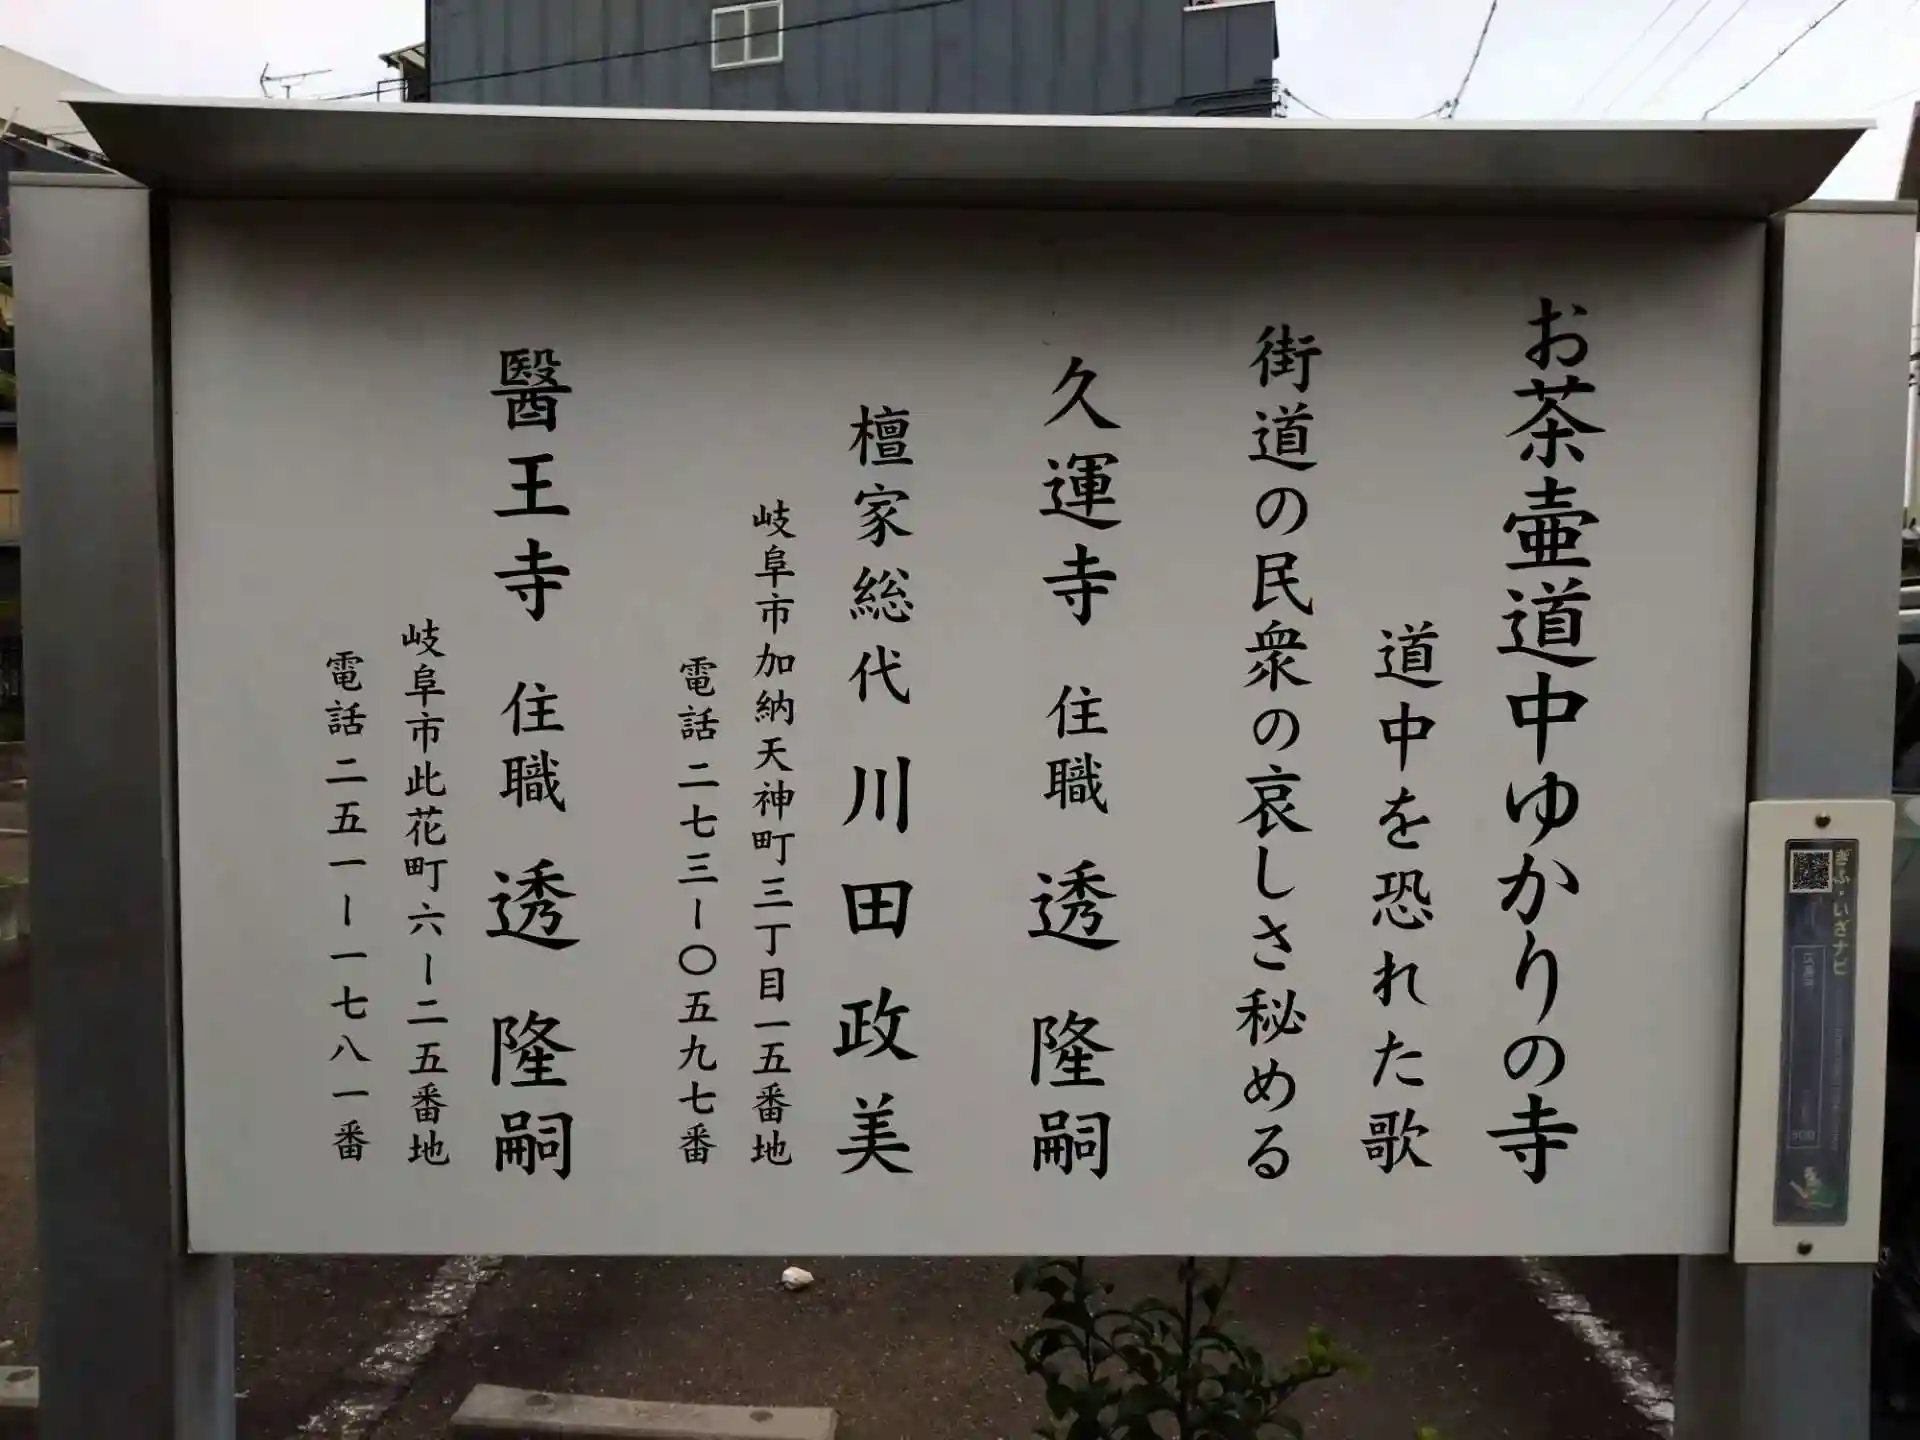 お茶壷道中ゆかりの寺
道中を恐れた歌
街道の民衆の哀しさ秘める
久運寺 住職 透 隆嗣
檀家総代 川田政美
岐阜市加納天神町三丁目一五番地
電話二七三ー〇五九七番
醫王寺 住職 透 隆嗣
岐阜市此花町六ー二五番地
電話二五一ー一七八一番
ぎふ・いざナビ